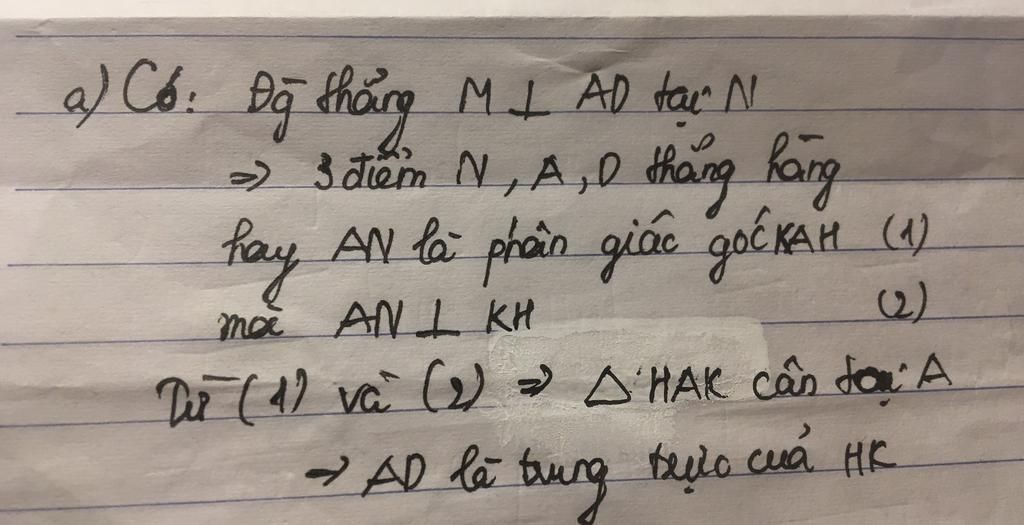 a) Có: Đg thẳng M ⊥ AD tại N
=> 3 điểm N, A, D thẳng hàng
hay AN là phân giác góc KAH (1)
mà AN ⊥ KH (2)
Từ (1) và (2) => △ HAK cân tại A
=> AD là trung trực của HK